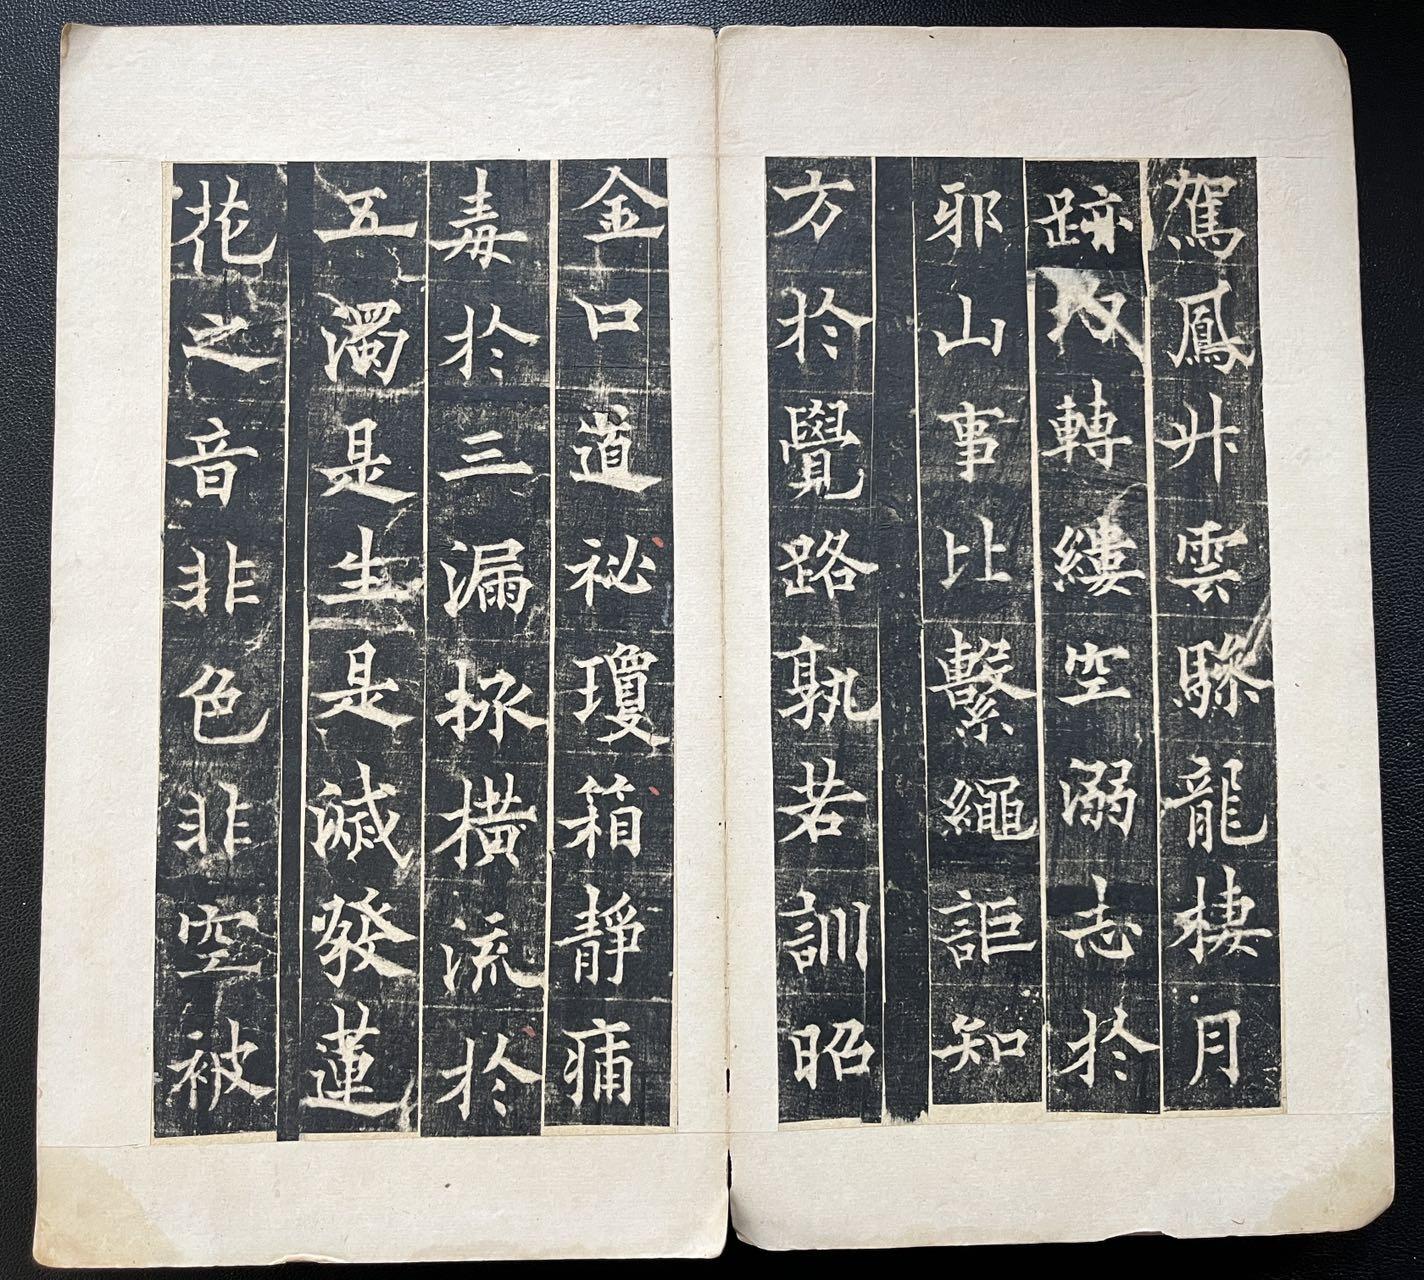 駕鳳升雲驂龍棲月
跡轉縷空溺志於
邪山事比繫繩詎知
方於覺路孰若訓昭
金口道祕瓊箱靜痡
毒於三漏拯橫流於
五濁是生是滅發蓮
花之音非色非空被